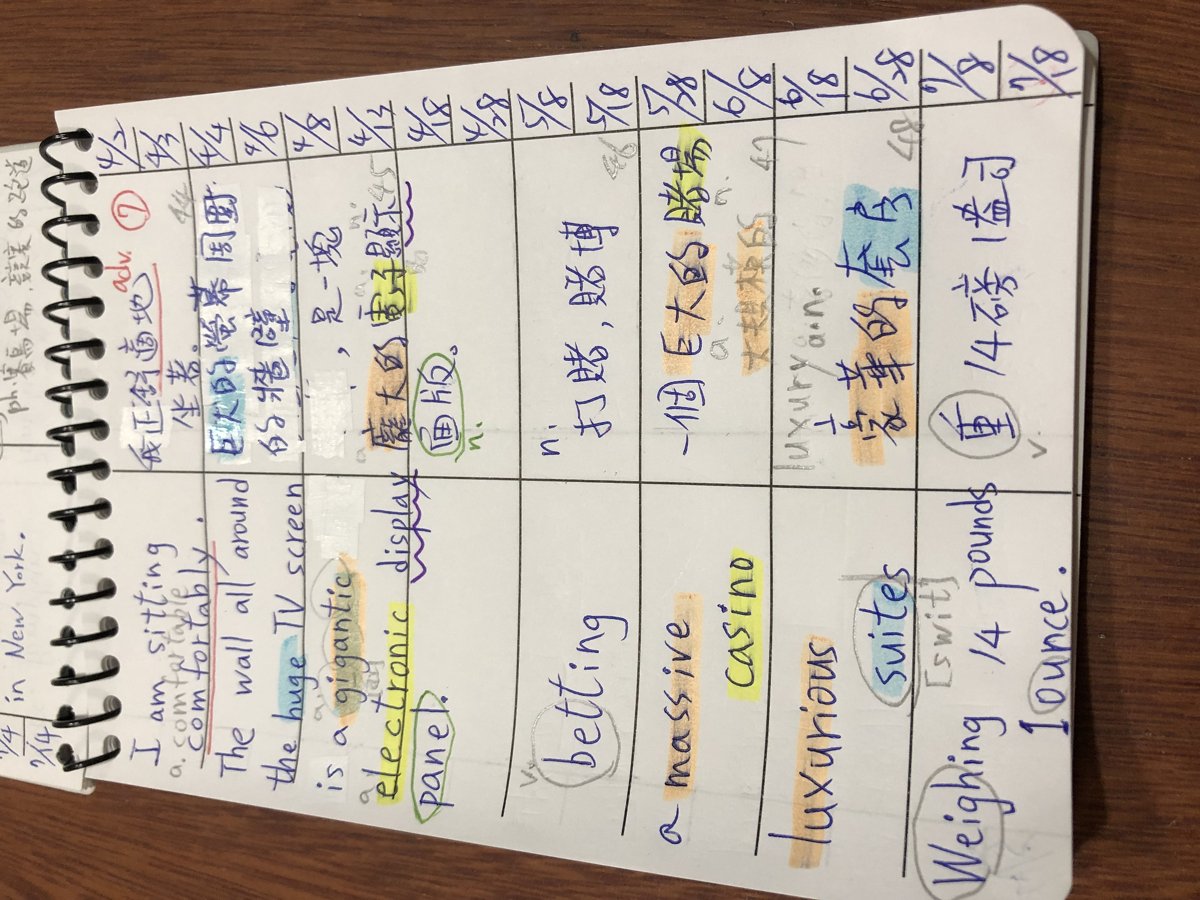 4/2
4/3
4/4
4/6
4/8
4/12
4/18
4/28
5/8
5/18
5/28
6/8
6/18
6/28
7/8
7/18
in New York.
I am sitting
comfortably.
a. comfortable
我正舒適地
adv.
7
坐著。
44
The wall all around
the huge TV screen
is a gigantic
electronic display
panel.
巨大的螢幕周圍
的牆壁
，是一塊
龐大的電子顯示
45
面版。
n.
betting
v.
n.
打賭，賭博
46
a massive
casino
一個巨大的賭場
a.
n.
大規模的
47
luxurious
suites
[swit]
luxury
a.n.
豪華的套房
48
Weighing 14 pounds
1 ounce.
重14磅1盎司
v.